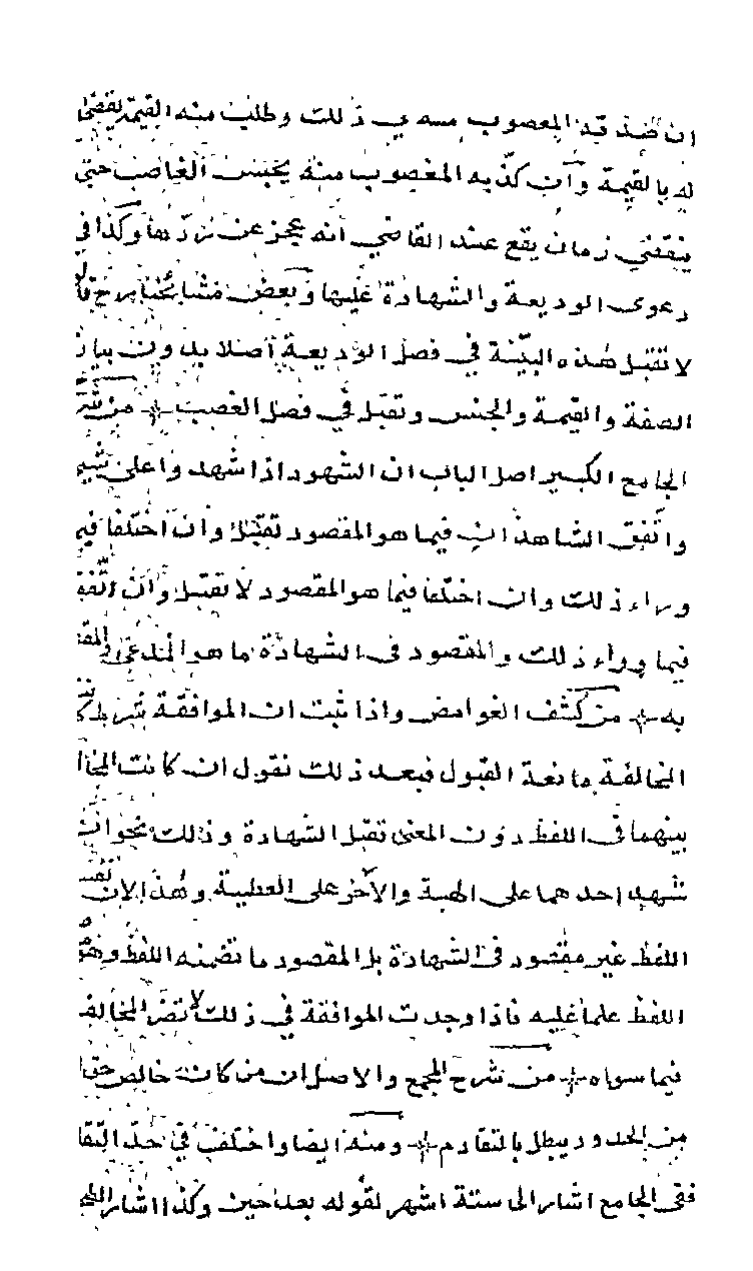 ان صدقه المغصوب منه في ذلك وطلب منه القيمة يقضي
له بالقيمة وان كذبه المغصوب منه يحبس الغاصب حتى
ينقضي زمان يقع عند القاضي انه عجز عن ردها وكذا في
دعوى الوديعة والشهادة عليها وبعض مشائخنا رح قا
لا تقبل هذه البينة في فصل الوديعة اصلا بدون بيان
الصفة والقيمة والجنس وتقبل في فصل الغصب من شر
الجامع الكبير اصل الباب ان الشهود اذا شهدوا على شي
واتفق الشاهدان فيما هو المقصود تقبل وان اختلفا فيم
وراء ذلك وان اختلفا فيما هو المقصود لا تقبل وان اتفق
فيما وراء ذلك والمقصود في الشهادة ما هو المدعى المق
به من كشف الغوامض واذا ثبت ان الموافقة شرط
المخالفة مانعة القبول فبعد ذلك نقول ان كانت المخا
بينهما في اللفظ دون المعنى تقبل الشهادة وذلك نحو ان
شهد احدهما على الهبة والآخر على العطية وهذا لان
اللفظ غير مقصود في الشهادة بل المقصود ما تضمنه اللفظ وهو
اللفظ علما عليه فاذا وجدت الموافقة في ذلك لا تضر المخالف
فيما سواه من شرح المجمع والاصل ان من كان خالص حق ا
من الحدود يبطل بالتقادم ومنه ايضا واختلف في حد التقا
ففي الجامع اشار الى ستة اشهر لقوله بعد حين وكذا اشار الط